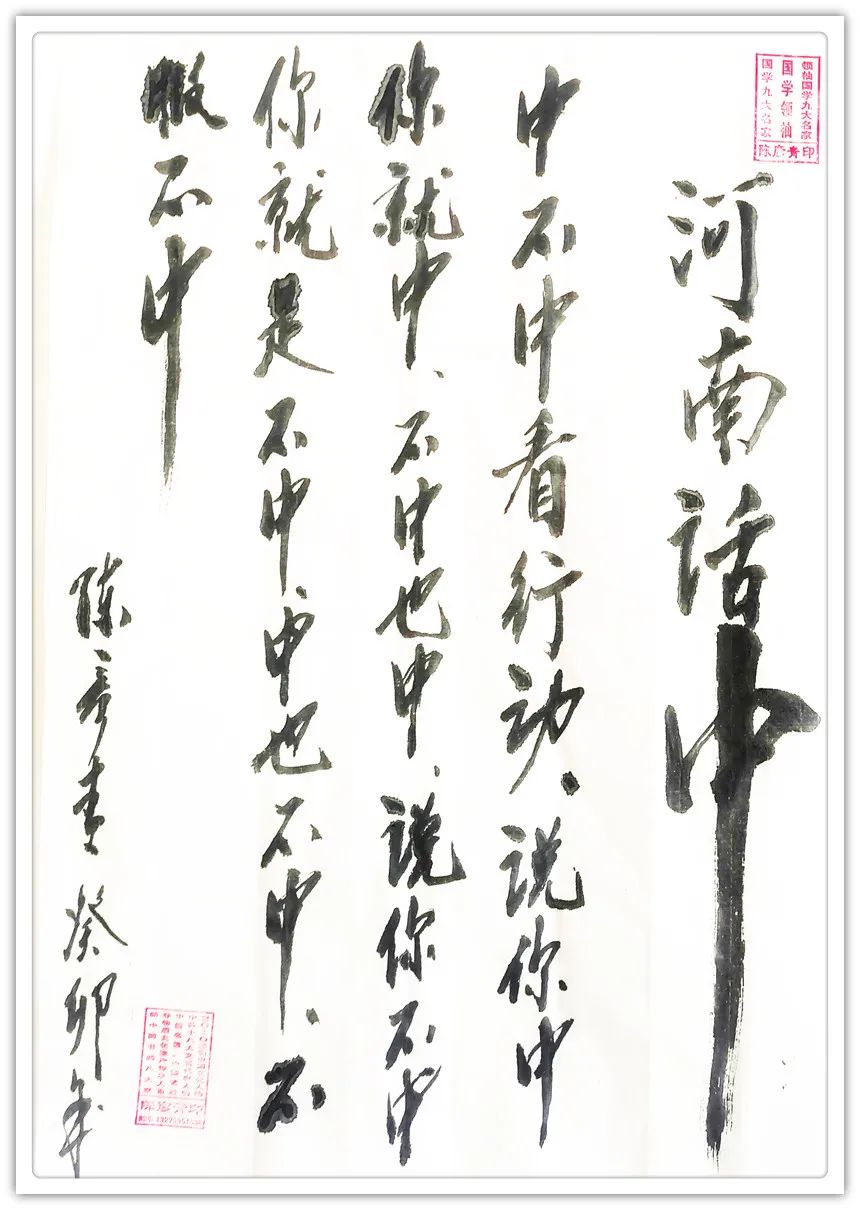 领袖国学九大名家
国学领袖
国学九大名家
陈彦青印
河南话中
中不中看行动。说你中
你就中、不中也中、说你不中
你就是不中、中也不中、不
服不中
陈彦青 癸卯年
陈彦青印